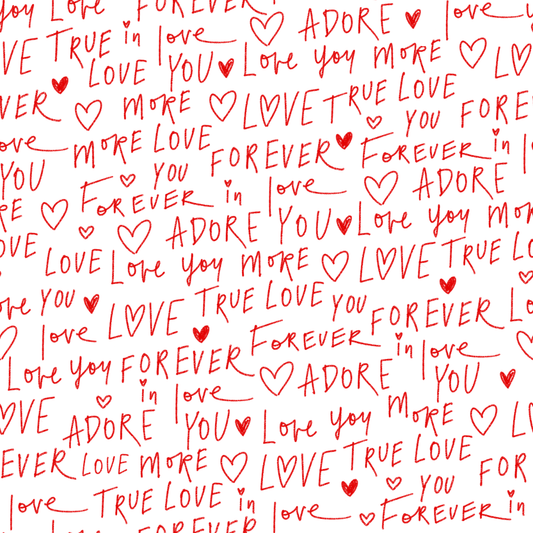 you Love FOREVER LOVE ADORE love
VE TRUE in love
LOVE YOU Love you MORE LO
VER MORE LOVE TRUE LOVE
YOU FOREVER
ove MORE LOVE FOREVER FOREVER in
YOU YOU
FOREVER in love ADORE
RE ADORE YOU Love you MOR
OVE LOVE Love you MORE LOVE TRUE LO
ove YOU LOVE TRUE LOVE YOU FOREVER LO
love FOREVER in love
Love you FOREVER ADORE YOU
in love
OVE ADORE YOU Love you MORE L
EVER LOVE MORE LOVE TRUE LOVE
YOU FOR
love TRUE LOVE in love FOREVER in
FOREVER